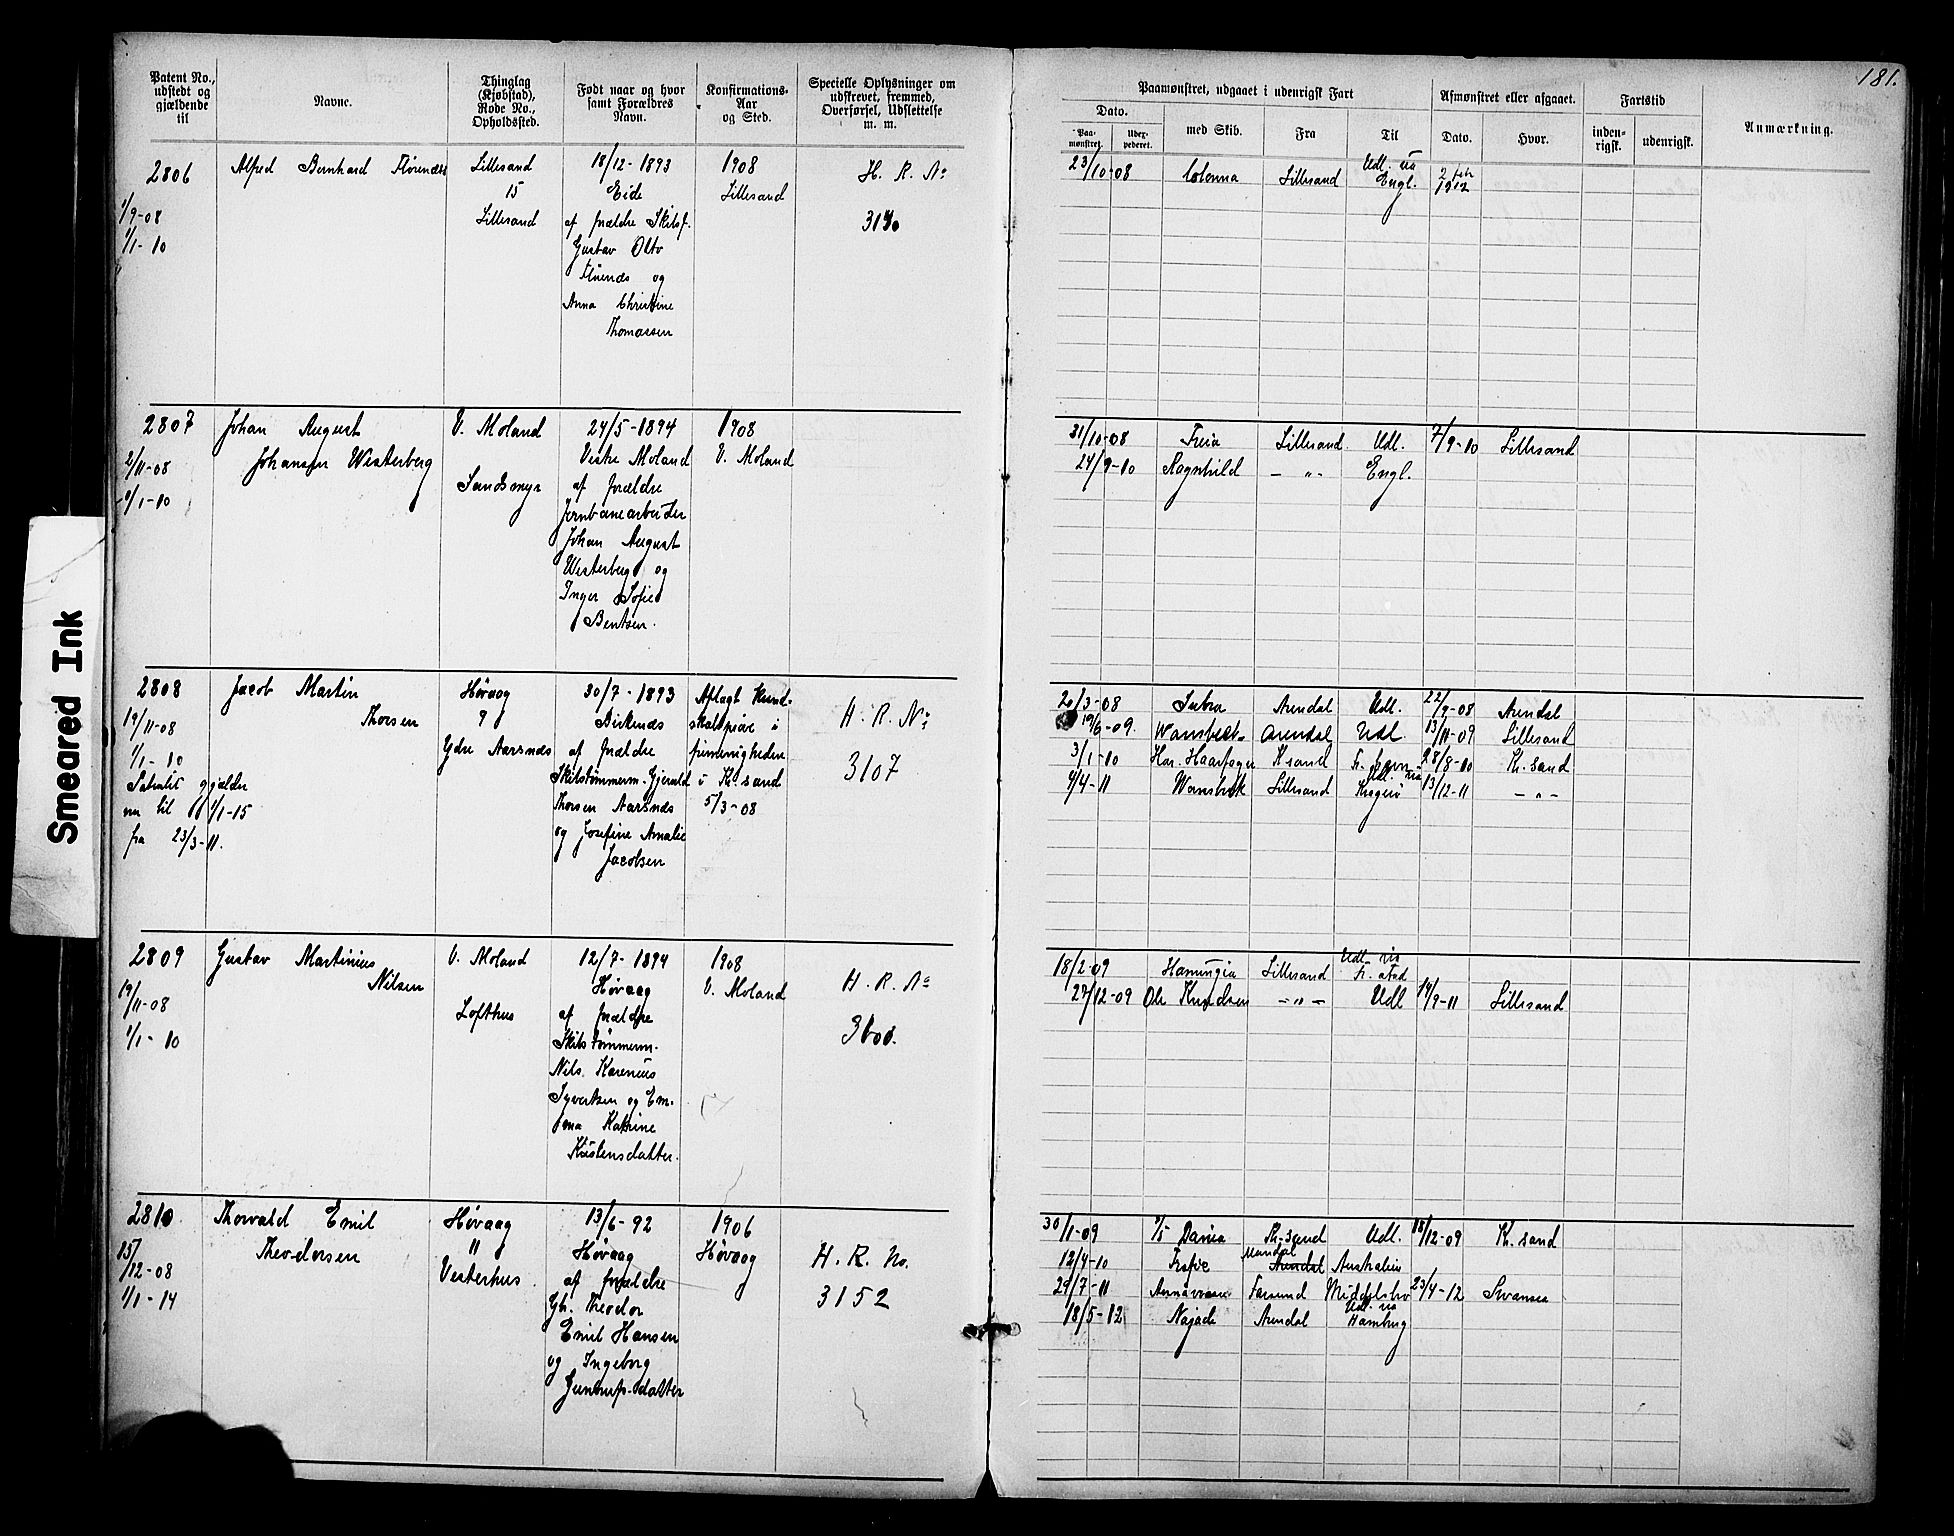 181.
Patent No., udstedt og gjældende til
Navne.
Thinglag (Kjøbstad), Rode No., Opholdssted.
Født naar og hvor samt Forældres Navn.
Konfirmations-Aar og Sted.
Specielle Oplysninger om udskrevet, fremmed, Overførsel, Udslettelse m. m.
Paamønstret, udgaaet i udenrigsk Fart
Dato.
Paa-mønstret.
Uder-pederet.
med Skib.
Fra
Til
Afmønstret eller afgaaet.
Dato.
Hvor.
Fartstid
inden-rigsk.
udenrigsk.
Anmærkning.
2806
1/9-08
1/1-10
Alfred Bernhard
Lillesand
15
Lillesand
18/12-1893
Eide
af forældre Skibsf.
Gustav Otto
og
Anna Christine
Thomassen
1908
Lillesand
H. R. No
23/10-08 Lillesand Engl. 1912
2807
2/11-08
1/1-10
Johan August
Johansen Westerberg
V. Moland
Sandsmyr
24/5-1894
Vestre Moland
af forældre
Jernbanearbeider
Johan August
Westerberg og
Inger Sofie
Bentsen.
1908
V. Moland
31/10-08 Freia Lillesand Udl. 7/9-10 Lillesand
24/9-10 Ragnhild — " — Engl.
2808
19/11-08
1/1-10
Patentet gjælder
nu til 1/1-15
fra 23/3-11.
Jacob Martin
Thorsen
Høvaag
9
Ydre Aarsnæs
30/7-1893
Birkenæs
af forældre
Skibstømmerm. Gjerald
Thorsen Aarsnæs
og Josefine Amalie
Jacobsen
Aflagt Kund-
skabsprøve i
i Kr.sand
5/3-08
H. R. No
3107
/3-08 Arendal Udl. 22/9-08 Arendal
19/6-09. Wansbeck Arendal Udl. 13/11-09 Lillesand
3/1-10 Har. Haarfager Ksand 28/8-10 Kr. sand
4/4-11 Wansbek Lillesand Udl. via Kragerø 13/12-11 — " —
2809
19/11-08
1/1-10
Gustav Martinius
Nilsen
V. Moland
Lofthus
12/7-1894
Høvaag
af forældre
Skibstømmerm.
Nils Karenius
Syvertsen og Em-
ma Katrine
Kristensdatter.
1908
V. Moland
H. R. No
18/2-09 Lillesand Udl. via Fr. stad
27/12-09 Ole Knudsen — " — Udl 14/9-11 Lillesand
2810
15/12-08
1/1-14
Thorvald Emil
Theodorsen
Høvaag
11
Vesterhus.
13/6-92
Høvaag
af forældre
Gh. Theodor
Emil Hansen
og Ingeborg
1906
Høvaag
H. R. No.
3152
30/1-09 Dania Kr.sand Udl. 18/12-09 Kr. sand
12/4-10 Mandal Arendal Australien
29/7-11 Farsund Middelsbro 23/4-12 Swansea
18/5-12 Najade Arendal Udl. via Hamburg
Smeared Ink